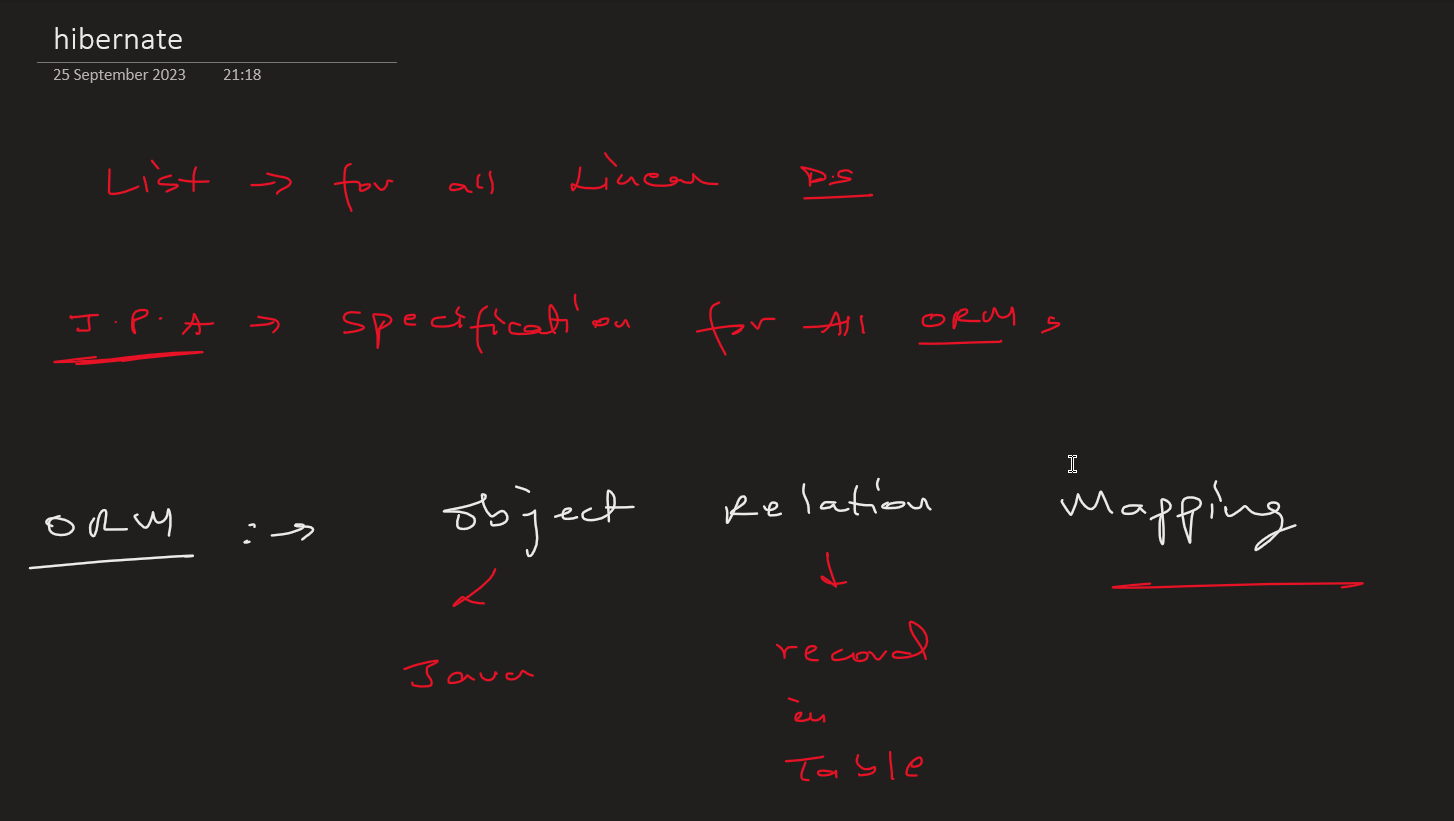 hibernate
25 September 2023 21:18
List → for all Linear D.S
J.P.A → specification for All ORM s
ORM :→ Object Relation Mapping
Java
record
in
Table